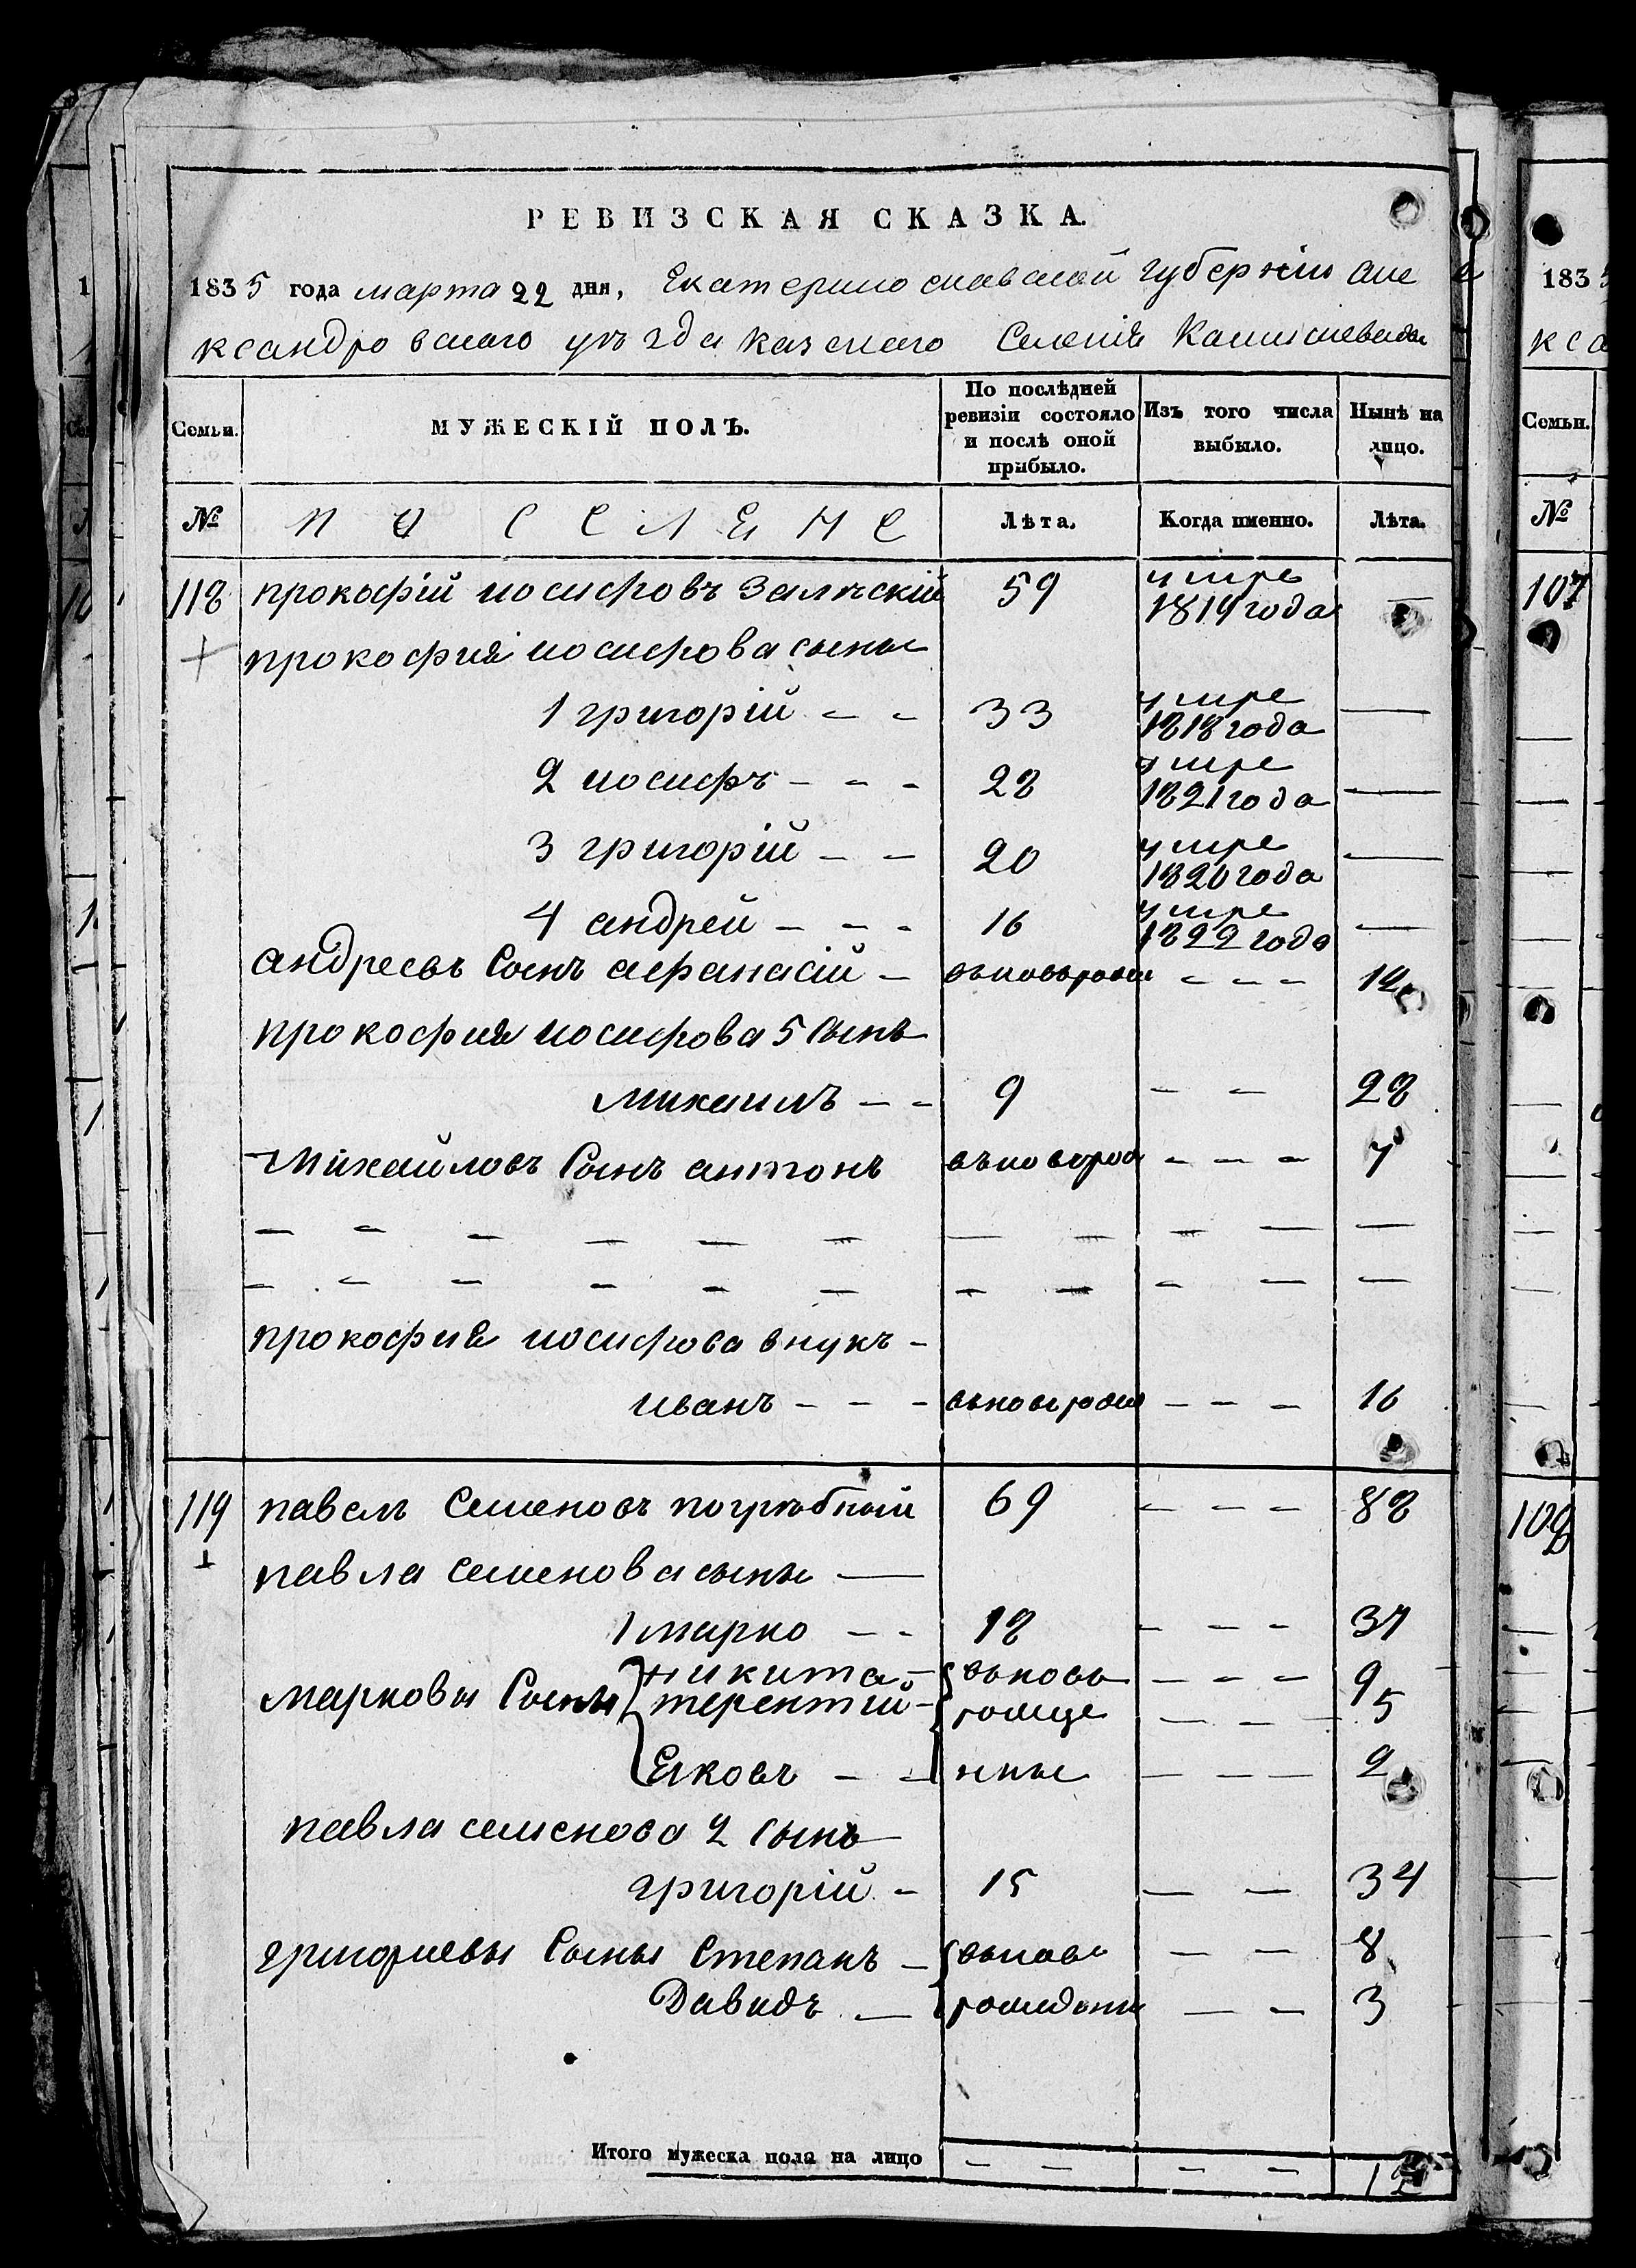 РЕВИЗСКАЯ СКАЗКА.
1835 года марта 22 дня, Екатеринославской губерніи але
ксандровскаго уѣзда казенаго Селенія
Семьи.
МУЖЕСКІЙ ПОЛЪ.
По послѣдней ревизіи состояло и послѣ оной прибыло.
Изъ того числа выбыло.
Нынѣ на лицо.
№
П О С Е Л Е Н Е
Лѣта.
Когда именно.
Лѣта.
118 прокофій иосифовъ Залѣскій 59 умре 1819 года —
прокофия иосифова сыны
1 григорій - - 33 умре 1818 года —
2 иосифъ - - - 28 умре 1821 года —
3 григорій - - 20 умре 1820 года —
4 андрей - - - 16 умре 1822 года —
андреевъ Сынъ афанасій - - - - 12
прокофия иосифова 5 Сынъ
михаилъ - - 9 - - 28
Михайловъ Сынъ антонъ - - - 7
— — — — — — — — — — —
— — — — — — — — — — —
прокофия иосифова внукъ -
иванъ - - - - - - 16
119 павелъ Семеновъ погрѣбный 69 - - - 88
павла семенова сыны —
1 марко - - 18 - - - 37
марковы Сыны никита - вьновь - - - 9
терентий - рожде - - - 5
Еяковъ - - нные - - - 2
павла семенова 2 Сынъ
григорій - 15 - - 34
григориевы Сыны Степанъ - вьновь - - 8
Давидъ - - - 3
Итого мужеска пола на лицо - - - -
183
кса
Семьи.
№
107
108